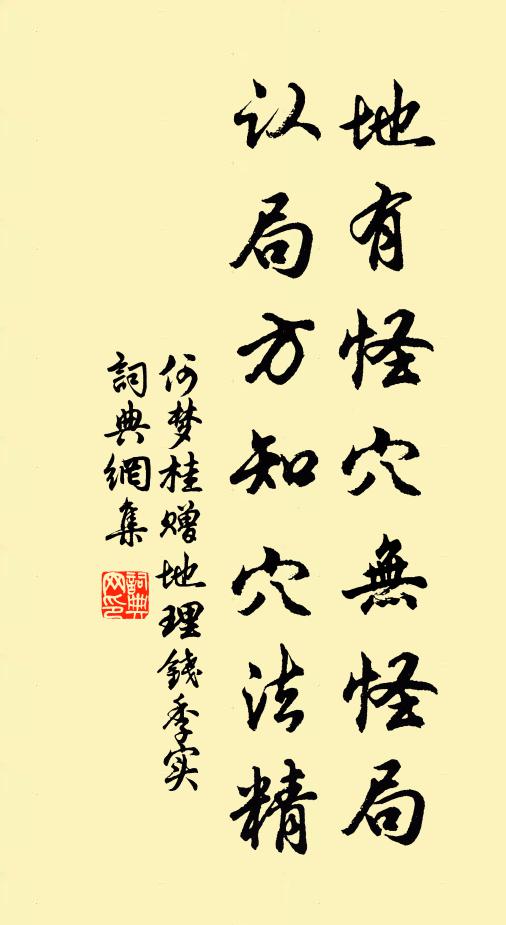 地有怪穴無怪局
认局方知穴法精
何梦桂赠地理錢季实
詞典網集
詞典网印